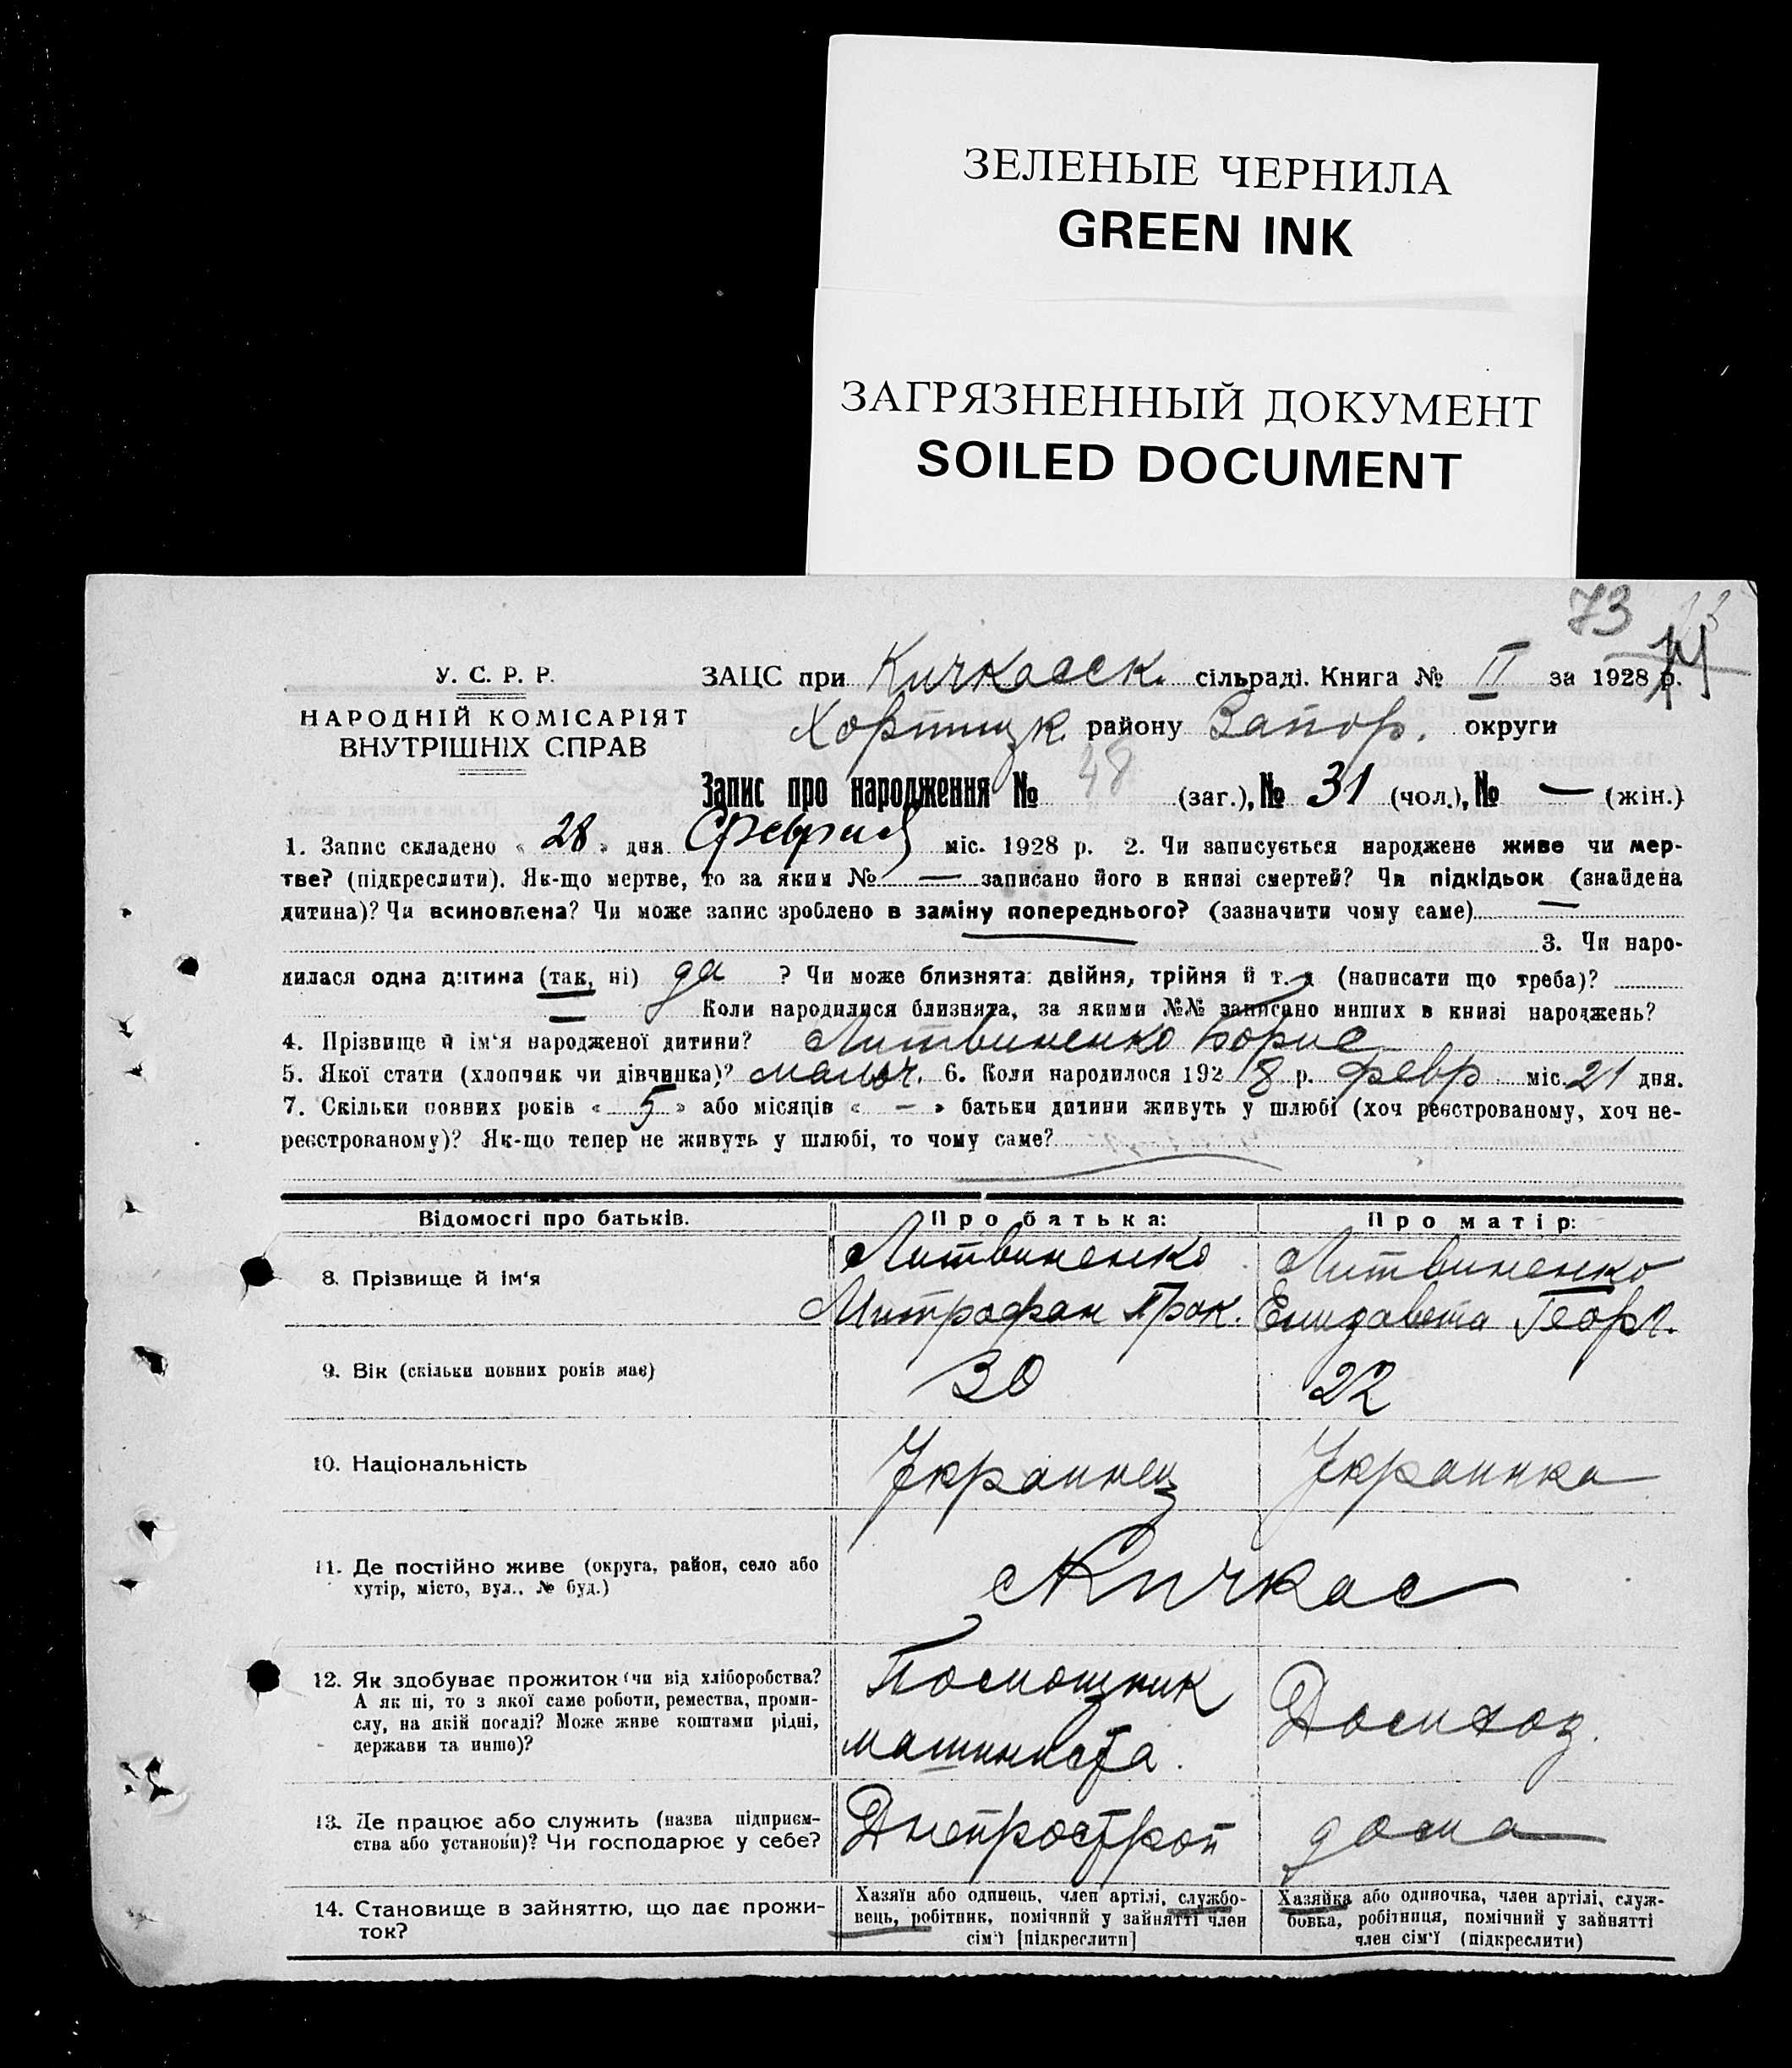 ЗЕЛЕНЫЕ ЧЕРНИЛА
GREEN INK
ЗАГРЯЗНЕННЫЙ ДОКУМЕНТ
SOILED DOCUMENT
73
У. С. Р. Р.
НАРОДНІЙ КОМІСАРІЯТ
ВНУТРІШНІХ СПРАВ
ЗАЦС при Кичкасск. сільраді. Книга № II за 1928 р.
Хортицк. району Запор. округи
Запис про народження № 48 (заг.), № 31 (чол.), № — (жін.)
1. Запис складено « 28 » дня февраля міс. 1928 р. 2. Чи записується народжене живе чи мер-
тве? (підкреслити). Як-що мертве, то за яким № — записано його в книзі смертей? Чи підкідьок (знайдена
дитина)? Чи всиновлена? Чи може запис зроблено в заміну попереднього? (зазначити чому саме) —
3. Чи наро-
дилася одна дитина (так, ні) да ? Чи може близнята: двійня, трійня й т. д (написати що треба)?
— Коли народилися близнята, за якими №№ записано инших в книзі народжень?
4. Прізвище й ім'я народженої дитини? Литвиненко Борис
5. Якої стати (хлопчик чи дівчинка)? мальч. 6. Коли народилося 1928 р. февр міс. 21 дня.
7. Скільки повних років « 5 » або місяців « - » батьки дитини живуть у шлюбі (хоч реєстрованому, хоч не-
реєстрованому)? Як-що тепер не живуть у шлюбі, то чому саме?
Відомості про батьків. Про батька: Про матір:
8. Прізвище й ім'я
Литвиненко Митрофан Прок.
Литвиненко Елизавета Георг.
9. Вік (скільки повних років має) 30 22
10. Національність Украинец Украинка
11. Де постійно живе (округа, район, село або
хутір, місто, вул., № буд.)
Кичкас
12. Як здобуває прожиток (чи від хліборобства?
А як ні, то з якої саме роботи, ремества, проми-
слу, на якій посаді? Може живе коштами рідні,
держави та инше)?
Помощник
машиниста.
Домхоз.
13. Де працює або служить (назва підприєм-
ства або установи)? Чи господарює у себе?
Днепрострой
дома
14. Становище в зайняттю, що дає прожи-
ток?
Хазяїн або одинець, член артілі, службо-
вець, робітник, помічний у зайнятті член
сім'ї [підкреслити]
Хазяйка або одиночка, член артілі, служ-
бовка, робітниця, помічний у зайнятті
член сім'ї (підкреслити)